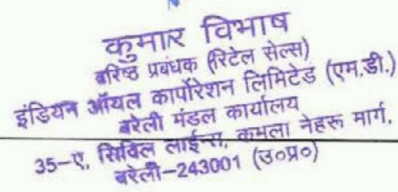 कुमार विभाष
बरिष्ठ प्रबंधक (रिटेल सेल्स)
इंडियन ऑयल कार्पोरेशन लिमिटेड (एम.डी.)
बरेली मंडल कार्यालय
35-ए, सिविल लाईन्स, कमला नेहरू मार्ग,
बरेली-243001 (उ०प्र०)